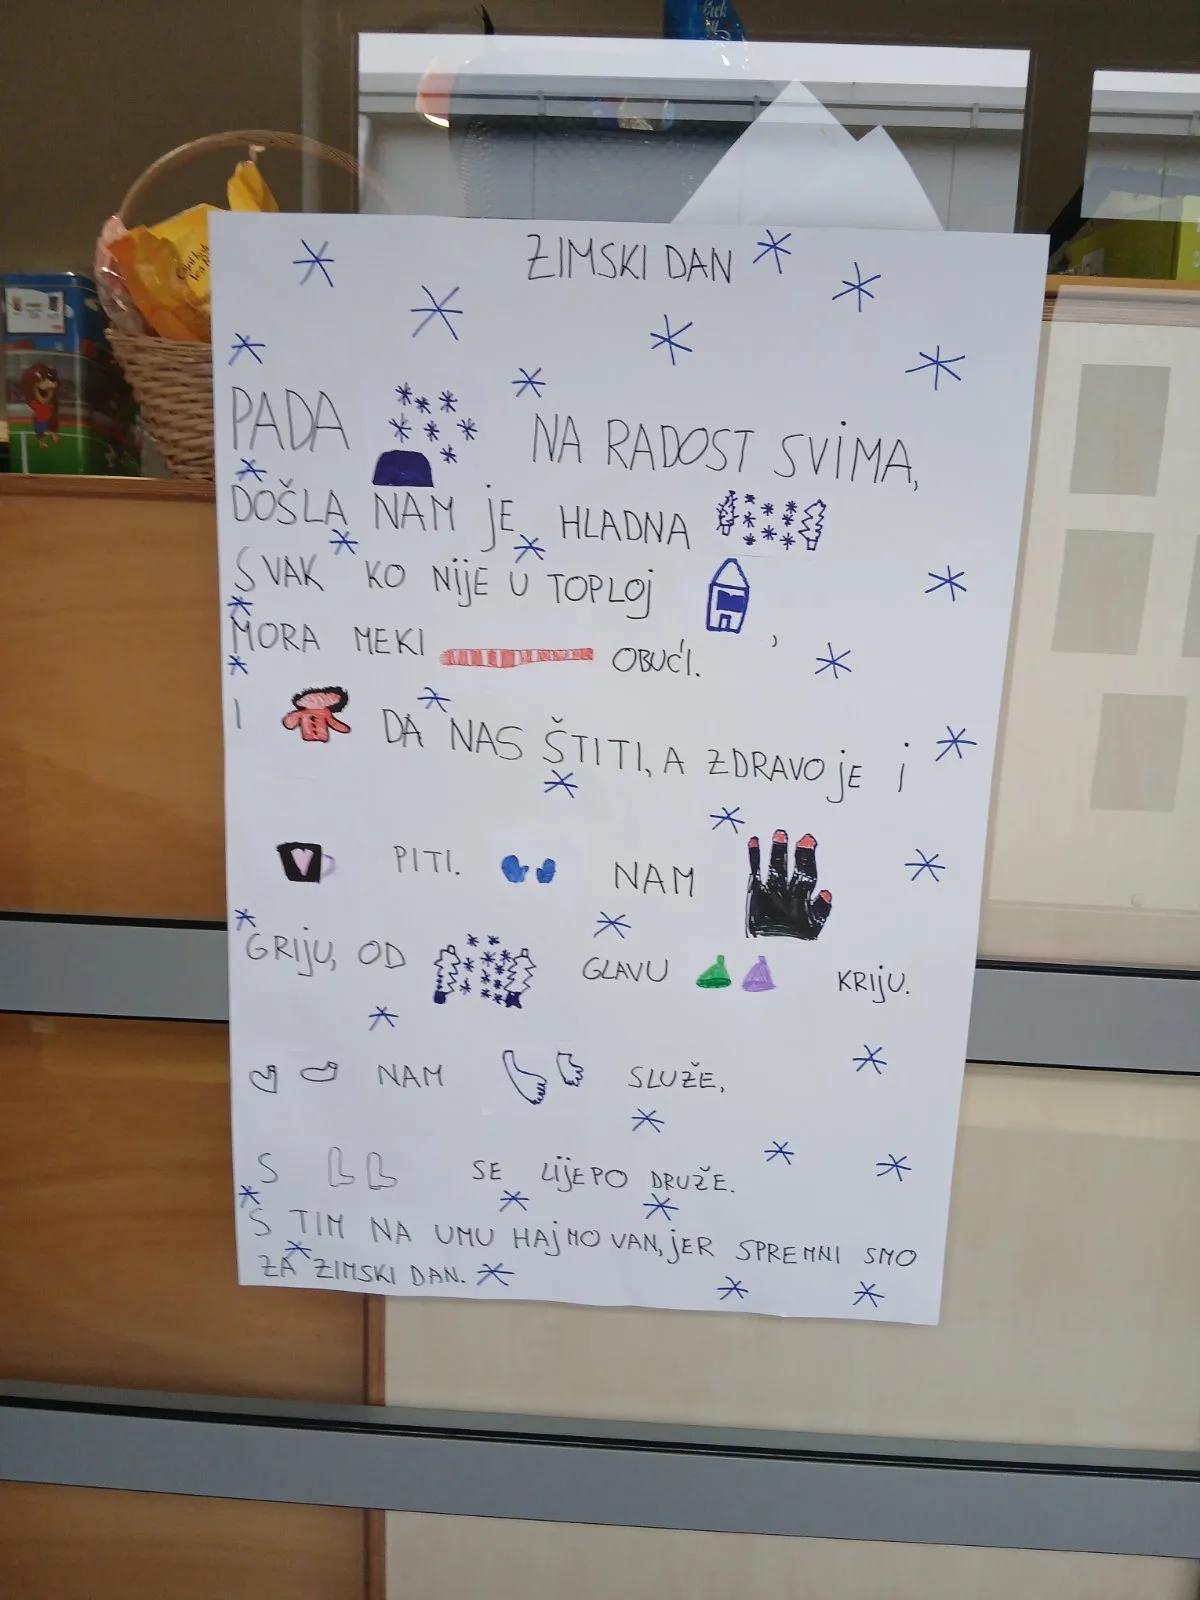 ZIMSKI DAN
PADA NA RADOST SVIMA,
DOŠLA NAM JE HLADNA
SVAK KO NIJE U TOPLOJ ,
MORA MEKI OBUĆI.
I DA NAS ŠTITI, A ZDRAVO JE I
PITI. NAM
GRIJU, OD GLAVU KRIJU.
NAM SLUŽE,
S SE LIJEPO DRUŽE.
S TIM NA UMU HAJMO VAN, JER SPREMNI SMO
ZA ZIMSKI DAN.